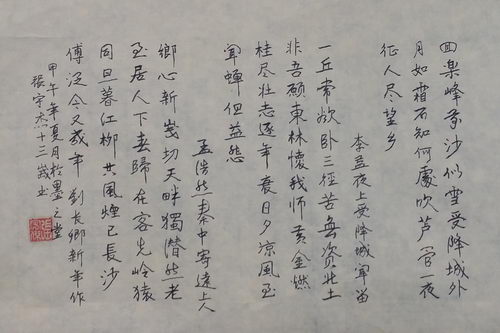 回樂峰前沙似雪受降城外
月如霜不知何處吹芦管一夜
征人尽望乡
李益夜上受降城闻笛
一丘常欲卧三径苦無资北土
非吾願東林懷我师黄金燃
桂尽壮志逐年衰日夕凉風至
闻蝉但益悲
孟浩然秦中寄遠上人
鄉心新歲切天畔獨潜然老
至居人下春歸在客先岭猿
同旦暮江柳共風煙已長沙
傅從今又幾年 刘長卿新年作
甲午年夏月於墨之堂
張宇杰十三歲书